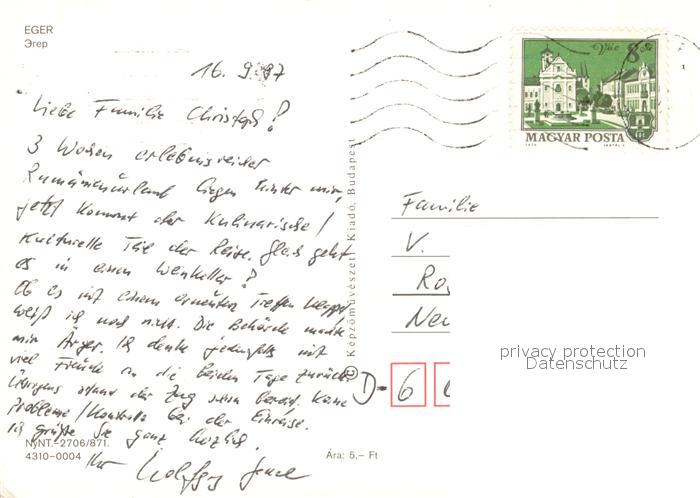 EGER
Эгер
16. 9. 87
Liebe Familie Christoph!
3 Wochen erlebnisreicher
Rumänienurlaub liegen hinter mir,
jetzt kommt der kulinarische/
kulturelle Teil der Reise. Gleich geht
es in einen Weinkeller!
Ob es mit einem erneuten Treffen klappt
weiß ich noch nicht. Die Behörde macht
mir Ärger. Ich denke jedenfalls mit
viel Freude an die beiden Tage zurück.
Übrigens stand der Zug schon bereit. Keine
Probleme/Kontrolle bei der Einreise.
Ich grüße Sie ganz herzlich
Ihr Wolfgang
NyNT.-2706/871.
4310-0004
Ára: 5,– Ft
Képzőművészeti Kiadó, Budapest
Vác 8 Ft
MAGYAR POSTA
Familie
V.
Ro
Neu
D-6
privacy protection
Datenschutz